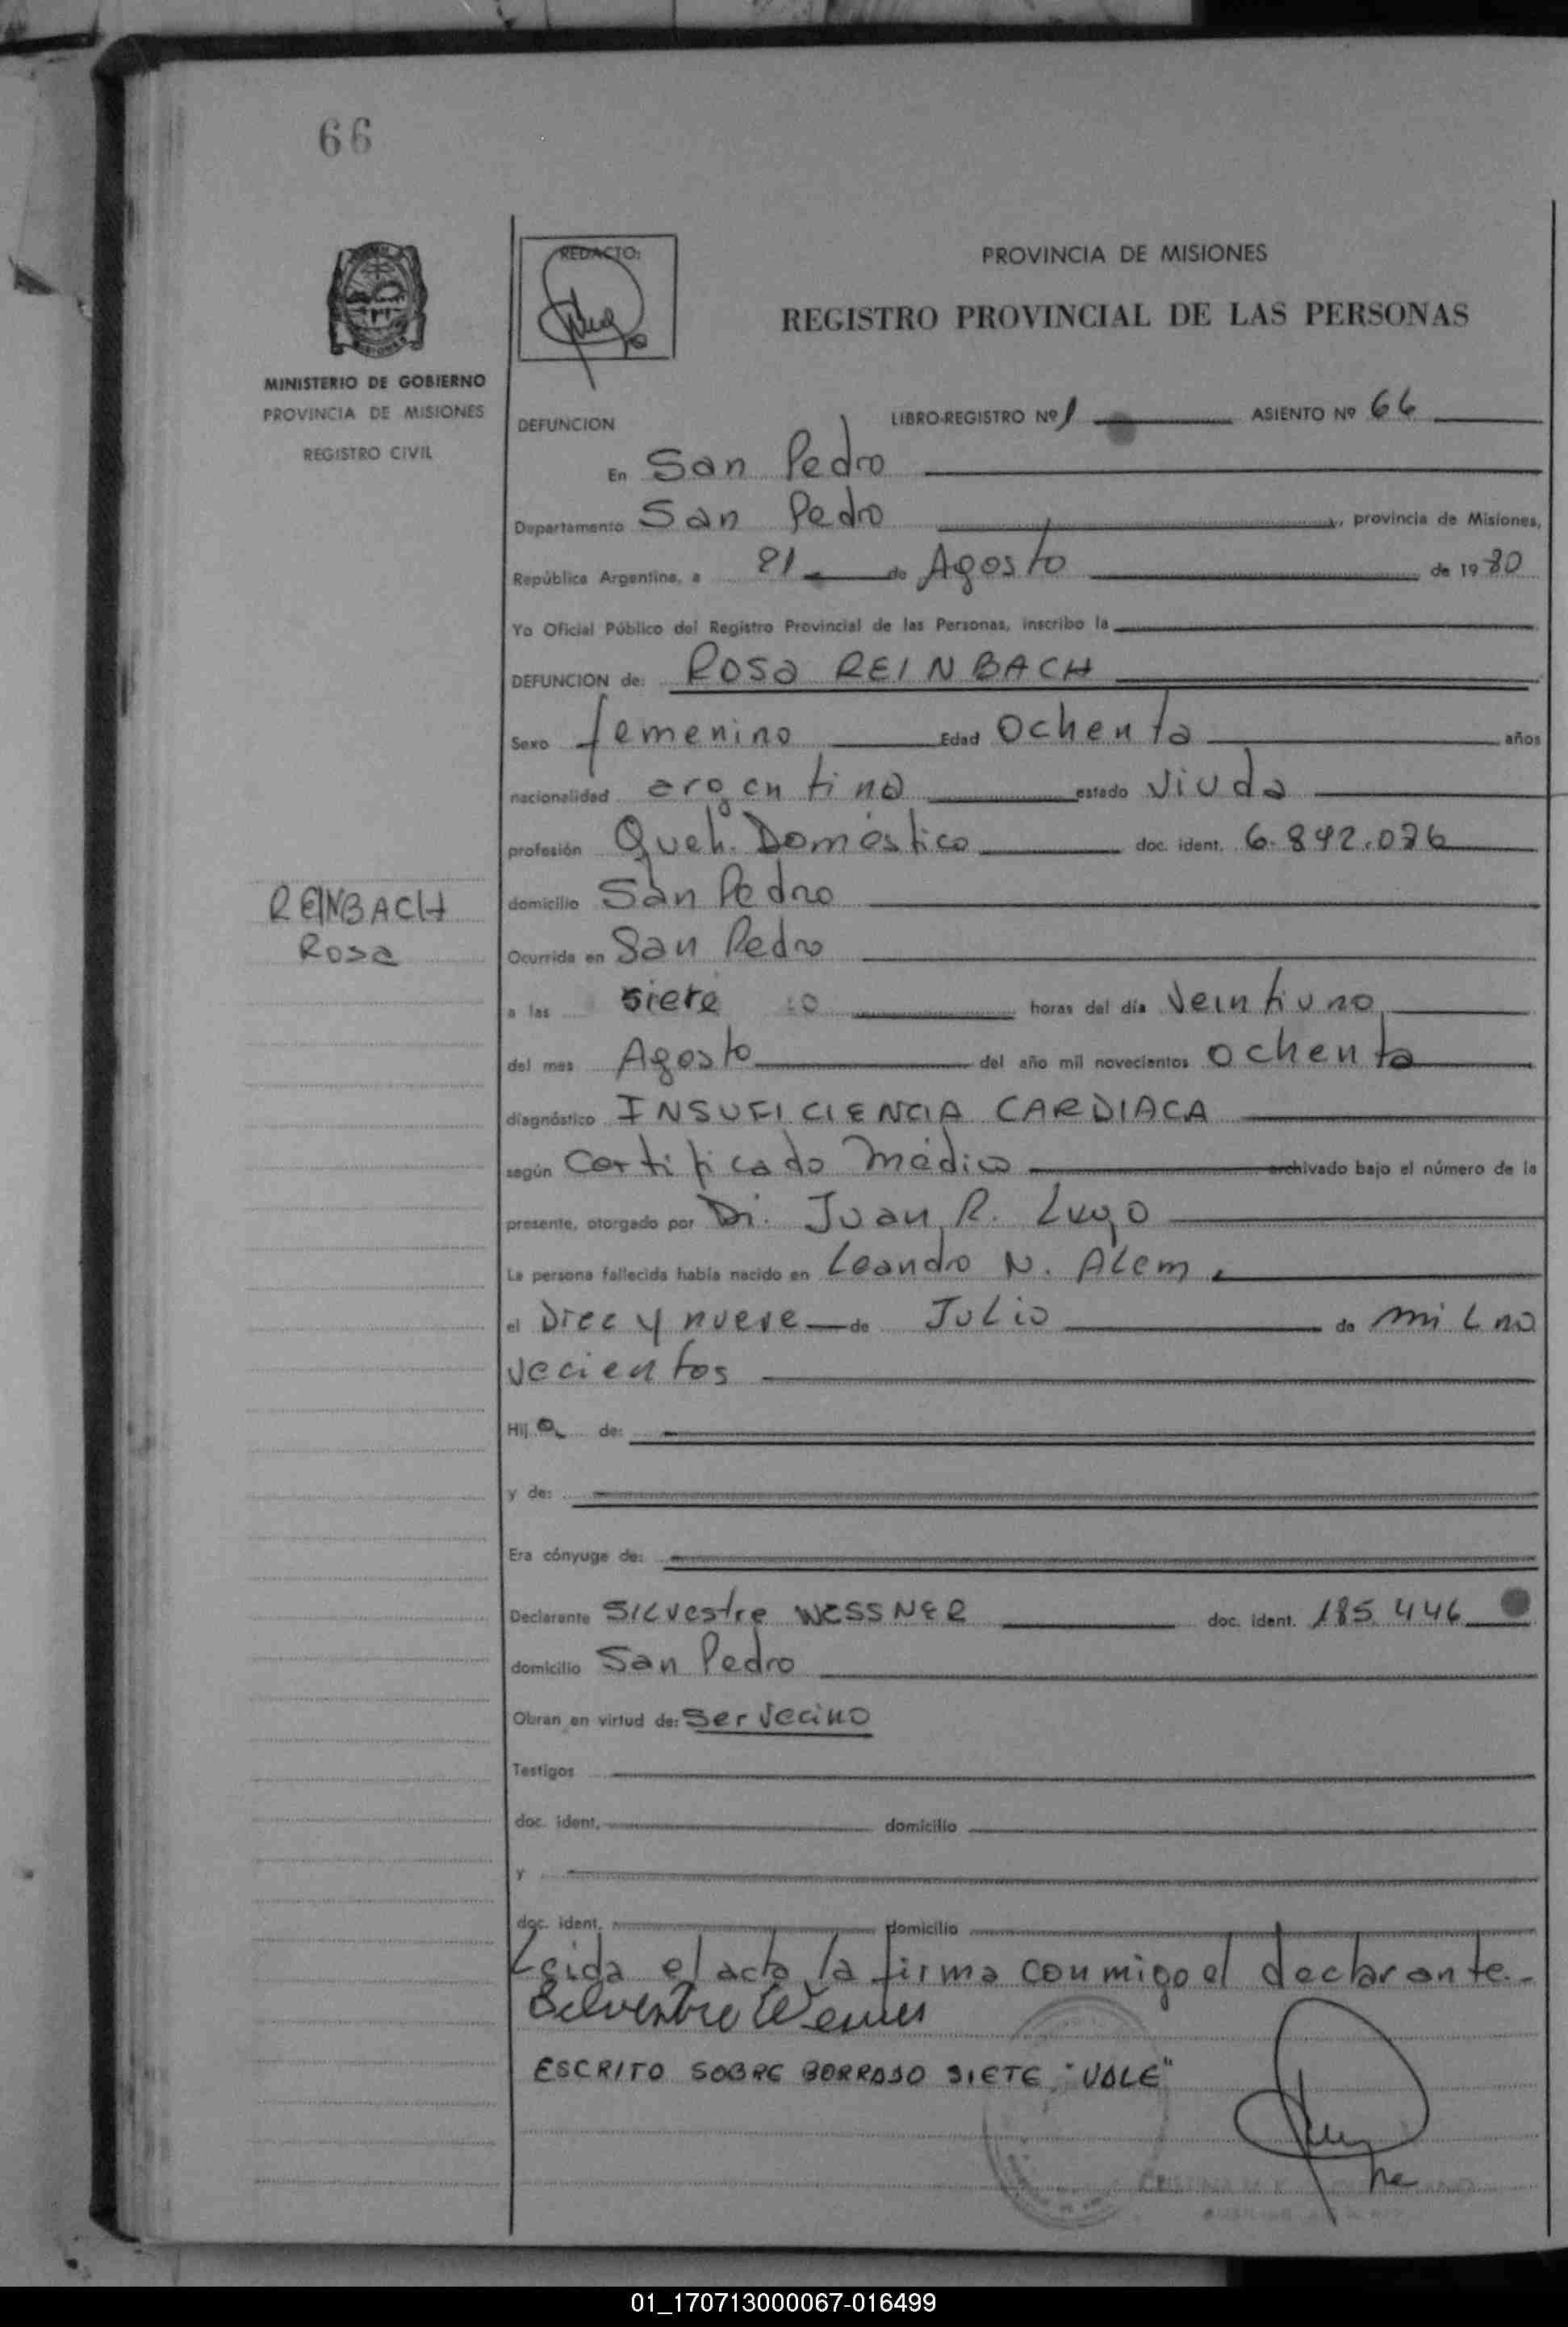 66
MINISTERIO DE GOBIERNO
PROVINCIA DE MISIONES
REGISTRO CIVIL
REINBACH
Rosa
REDACTO:
PROVINCIA DE MISIONES
REGISTRO PROVINCIAL DE LAS PERSONAS
DEFUNCION LIBRO-REGISTRO Nº 1 ASIENTO Nº 66
En San Pedro
Departamento San Pedro, provincia de Misiones,
República Argentina, a 21 de Agosto de 1980
Yo Oficial Público del Registro Provincial de las Personas, inscribo la
DEFUNCION de: Rosa REINBACH
Sexo femenino Edad Ochenta años
nacionalidad argentina estado Viuda
profesión Queh. Doméstico doc. ident. 6.842.026
domicilio San Pedro
Ocurrida en San Pedro
a las siete horas del día Veintiuno
del mes Agosto del año mil novecientos Ochenta
diagnóstico INSUFICIENCIA CARDIACA
según Certificado Médico archivado bajo el número de la
presente, otorgado por Dr. Juan R. Lugo
La persona fallecida había nacido en Leandro N. Alem.
el Diec y nueve de Julio de mil no
vecientos
Hija de:
y de:
Era cónyuge de:
Declarante Silvestre WESSNER doc. ident. 185.446
domicilio San Pedro
Obran en virtud de: Ser Vecino
Testigos
doc. ident. domicilio
y
doc. ident. domicilio
Leida el acta, la firma conmigo el declarante.-
Silvestre Wesner
ESCRITO SOBRE BORRADO SIETE "VALE"
01_170713000067-016499